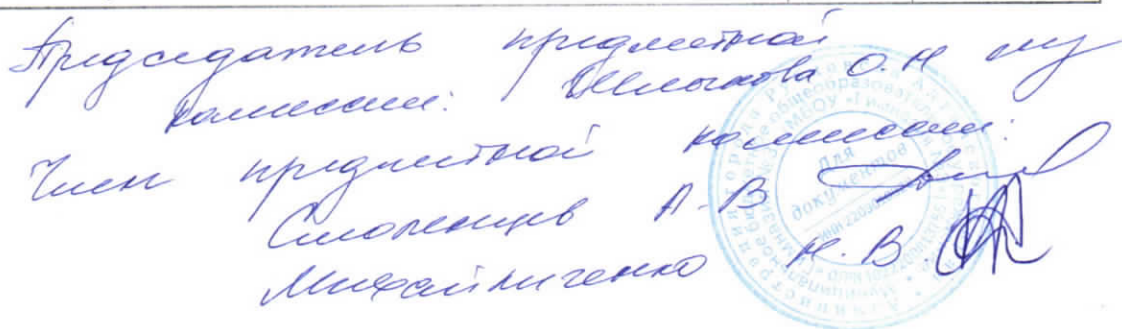 Председатель предметной
комиссии: Шлыкова О.Н
Член предметной комиссии:
Смоленцев А.В
Михайличенко Н.В.
Для
документов